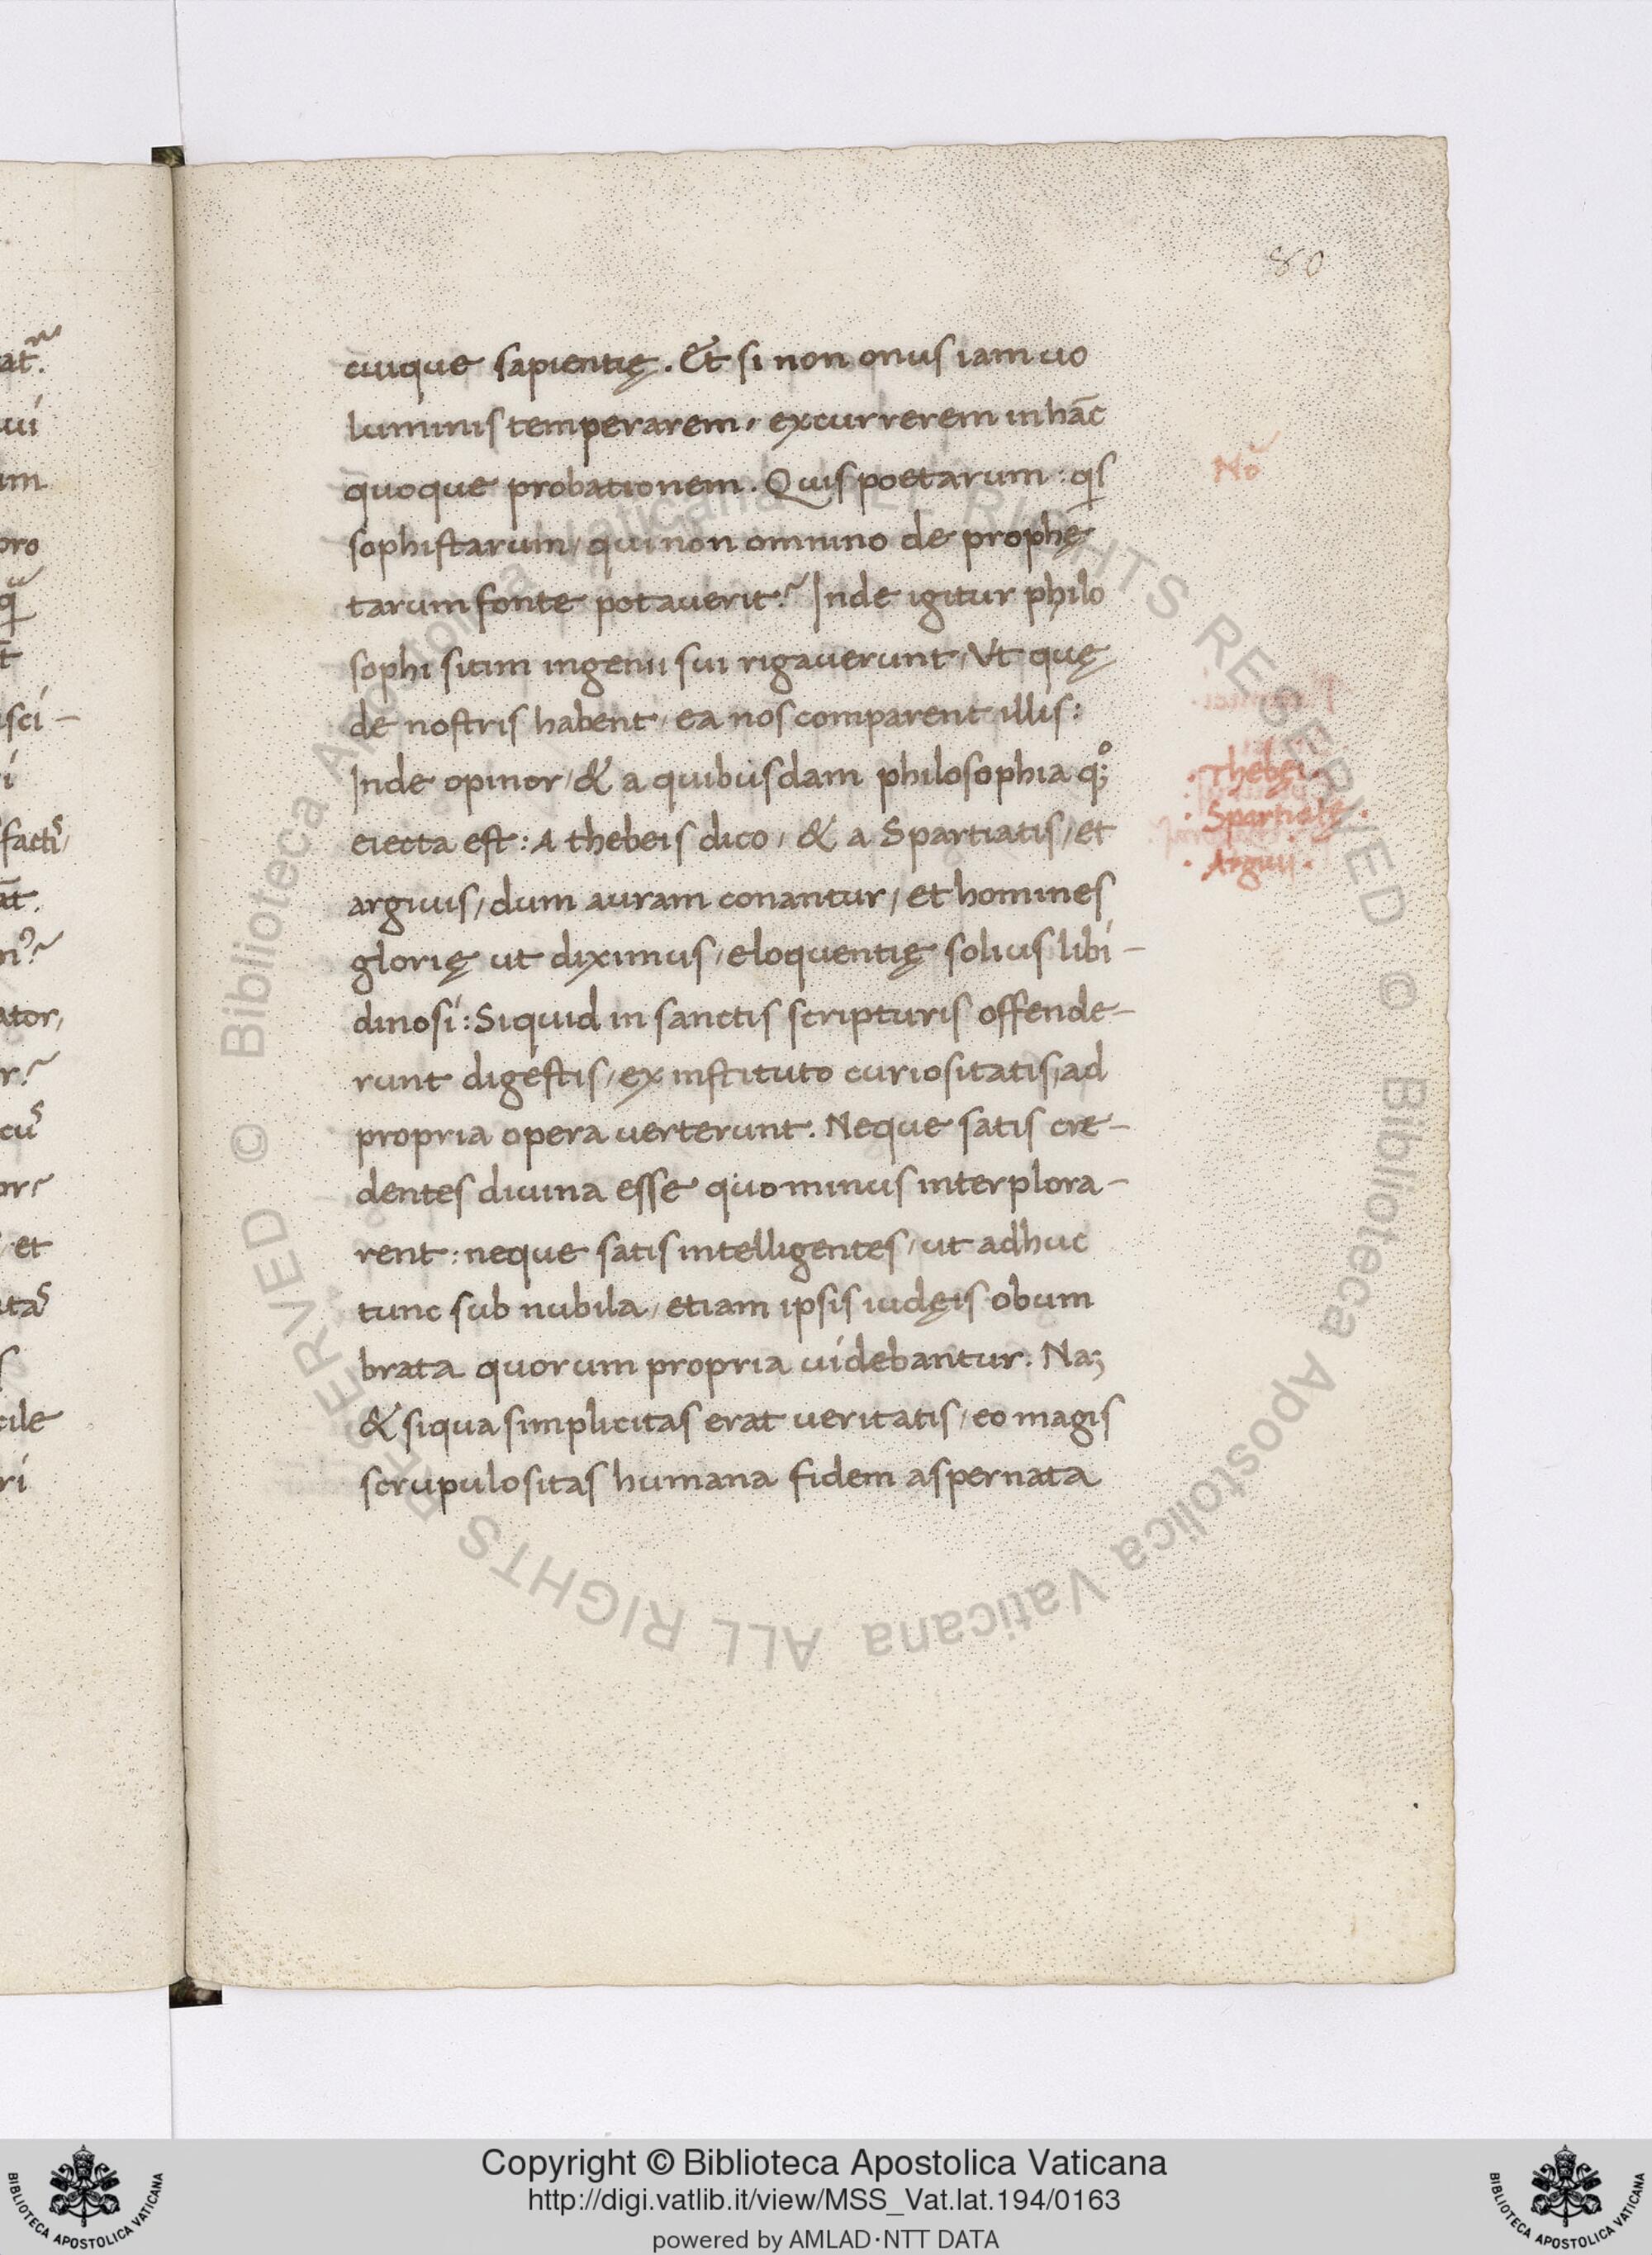 80
cuique sapientię. Et si non onus iam uo
luminis temperarem, excurrerem in hāc
quoque probationem. Quis poetarum: qs
sophistarum, qui non omnino de prophę
tarum fonte potauerit? Inde igitur philo
sophi sitim ingenii sui rigauerunt, Vt quę
de nostris habent, ea nos comparent illis:
Inde opinor, & a quibusdam philosophia q;
eiecta est: A thebeis dico, & a Spartiatis, et
argiuis, dum auram conantur, et homines
glorię ut diximus, eloquentię solius libi-
dinosi: Siquid in sanctis scripturis offende-
runt digestis, ex instituto curiositatis, ad
propria opera uerterunt. Neque satis cre-
dentes diuina esse quominus interplora-
rent: neque satis intelligentes, ut adhuc
tunc sub nubila, etiam ipsis iudęis obum
brata quorum propria uidebantur. Na;
& siqua simplicitas erat ueritatis, eo magis
scrupulositas humana fidem aspernata
Nō
.Thebei.
.Spartiatę.
.Argiui.
Copyright © Biblioteca Apostolica Vaticana
http://digi.vatlib.it/view/MSS_Vat.lat.194/0163
powered by AMLAD·NTT DATA
BIBLIOTECA APOSTOLICA VATICANA
BIBLIOTECA APOSTOLICA VATICANA
© Biblioteca Apostolica Vaticana ALL RIGHTS RESERVED © Biblioteca Apostolica Vaticana ALL RIGHTS RESERVED